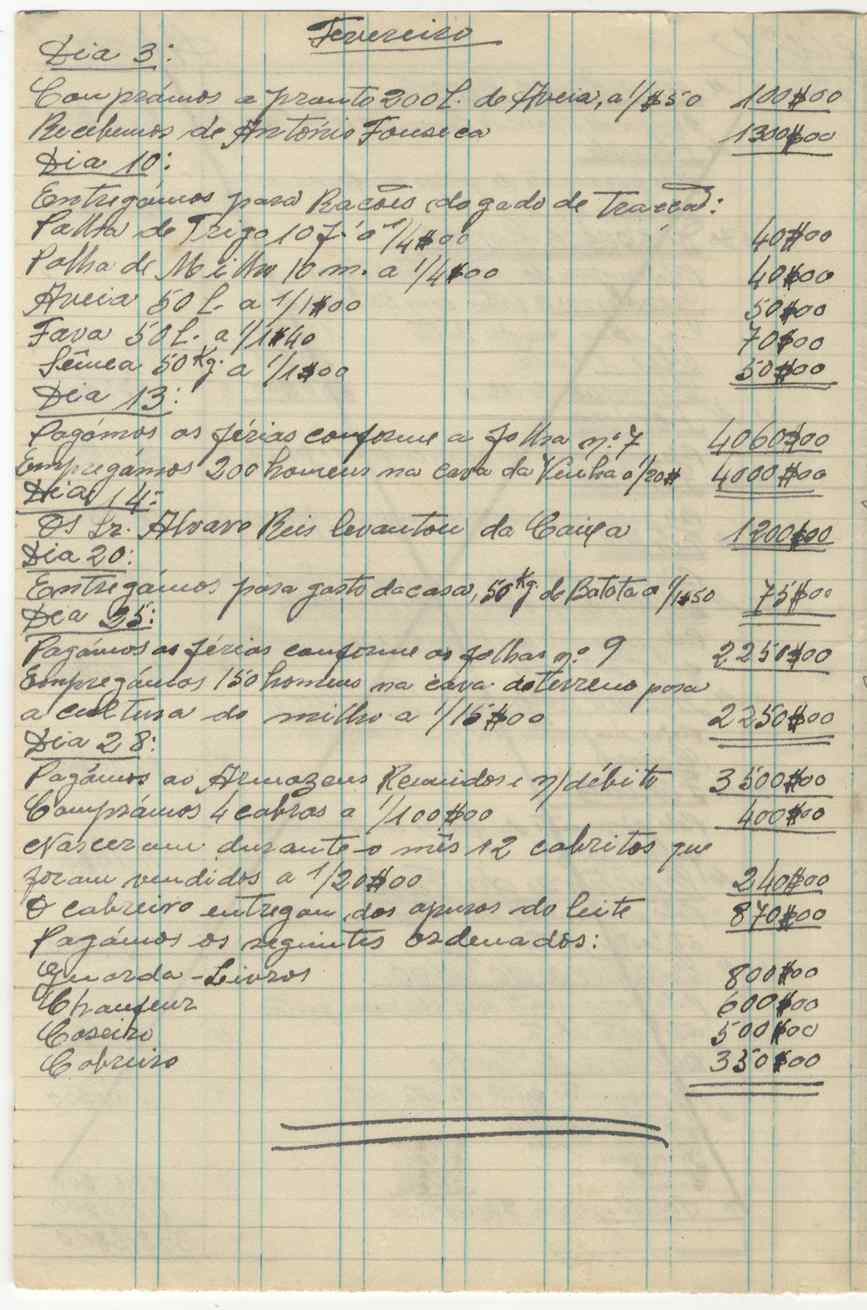 Fevereiro
Dia 3:
Comprámos a pronto 200 l. de Aveia, a 1/$50 100$00
Recebemos de António Fonseca 1300$00
Dia 10:
Entregámos para Rações do gado de Tracção:
Palha de Trigo 10 f. a 1/4$00 40$00
Palha de Milho 10 m. a 1/4$00 40$00
Aveia 50 l. a 1/1$00 50$00
Fava 50 l. a 1/1$40 70$00
Sêmea 50 Kg. a 1/1$00 50$00
Dia 13:
Pagámos as férias conforme a folha n.º 7 4060$00
Empregámos 200 homens na cava da Vinha a 1/20$ 4000$00
Dia 14:
O Sr. Alvaro Reis levantou da Caixa 1200$00
Dia 20:
Entregámos para gasto da casa, 50 Kg. de Batata a 1/1$50 75$00
Dia 25:
Pagámos as férias conforme as folhas n.º 9 2250$00
Empregámos 150 homens na cava do terreno para
a cultura do milho a 1/15$00 2250$00
Dia 28:
Pagámos ao Armazens Reunidos n/débito 3500$00
Comprámos 4 cabras a 1/100$00 400$00
Nasceram durante o mês 12 cabritos que
foram vendidos a 1/20$00 240$00
O cabreiro entregou dos apuros do leite 870$00
Pagámos os seguintes ordenados:
Guarda-Livros 800$00
Chaufeur 600$00
Caseiro 500$00
Cabreiro 350$00